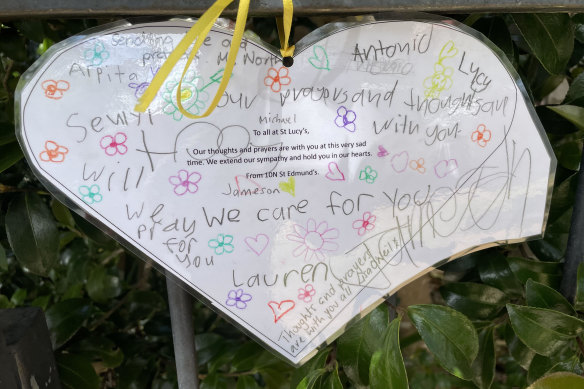 Sending love and
prayers. M North
Antonio
Antonio
Lucy
Arpita
Our Prayers and thoughts are
with you
Sewri
Michael
To all at St Lucy's,
Our thoughts and prayers are with you at this very sad
time. We extend our sympathy and hold you in our hearts.
From 10N St Edmund's.
Will
Jameson
We
pray
for
you
We care for you
Lauren
Thoughts and Prayers
are with you all